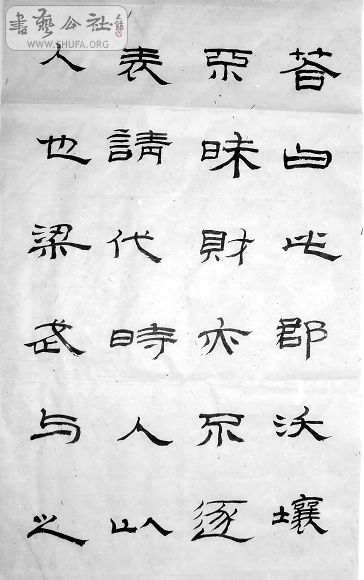 書藝公社
WWW.SHUFA.ORG
荅白此郡沃壤
不昧財亦不逐
表請代時人以
人也梁武与之